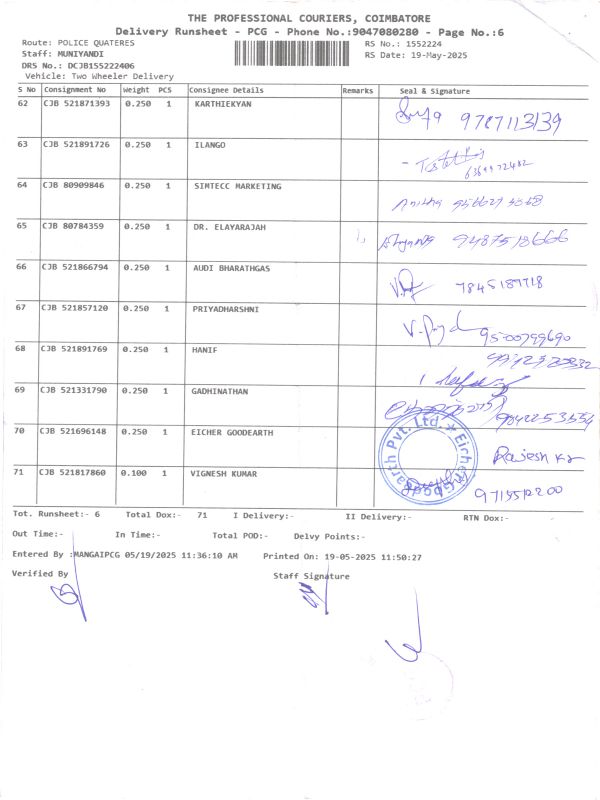 THE PROFESSIONAL COURIERS, COIMBATORE
Delivery Runsheet - PCG - Phone No.:9047080280 - Page No.:6
Route: POLICE QUATERES RS No.: 1552224
Staff: MUNIYANDI RS Date: 19-May-2025
DRS No.: DCJB155222406
Vehicle: Two Wheeler Delivery
S No Consignment No Weight PCS Consignee Details Remarks Seal & Signature
62 CJB 521871393 0.250 1 KARTHIEKYAN
9787113139
63 CJB 521891726 0.250 1 ILANGO
64 CJB 80909846 0.250 1 SIMTECC MARKETING
65 CJB 80784359 0.250 1 DR. ELAYARAJAH
9487518666
66 CJB 521866794 0.250 1 AUDI BHARATHGAS
67 CJB 521857120 0.250 1 PRIYADHARSHNI
9500799690
68 CJB 521891769 0.250 1 HANIF
69 CJB 521331790 0.250 1 GADHINATHAN
9842253554
70 CJB 521696148 0.250 1 EICHER GOODEARTH
Eicher Goodearth Pvt. Ltd.
Rajesh Kr
71 CJB 521817860 0.100 1 VIGNESH KUMAR
Tot. Runsheet:- 6 Total Dox:- 71 I Delivery:- II Delivery:- RTN Dox:-
Out Time:- In Time:- Total POD:- Delvy Points:-
Entered By :MANGAIPCG 05/19/2025 11:36:10 AM Printed On: 19-05-2025 11:50:27
Verified By Staff Signature